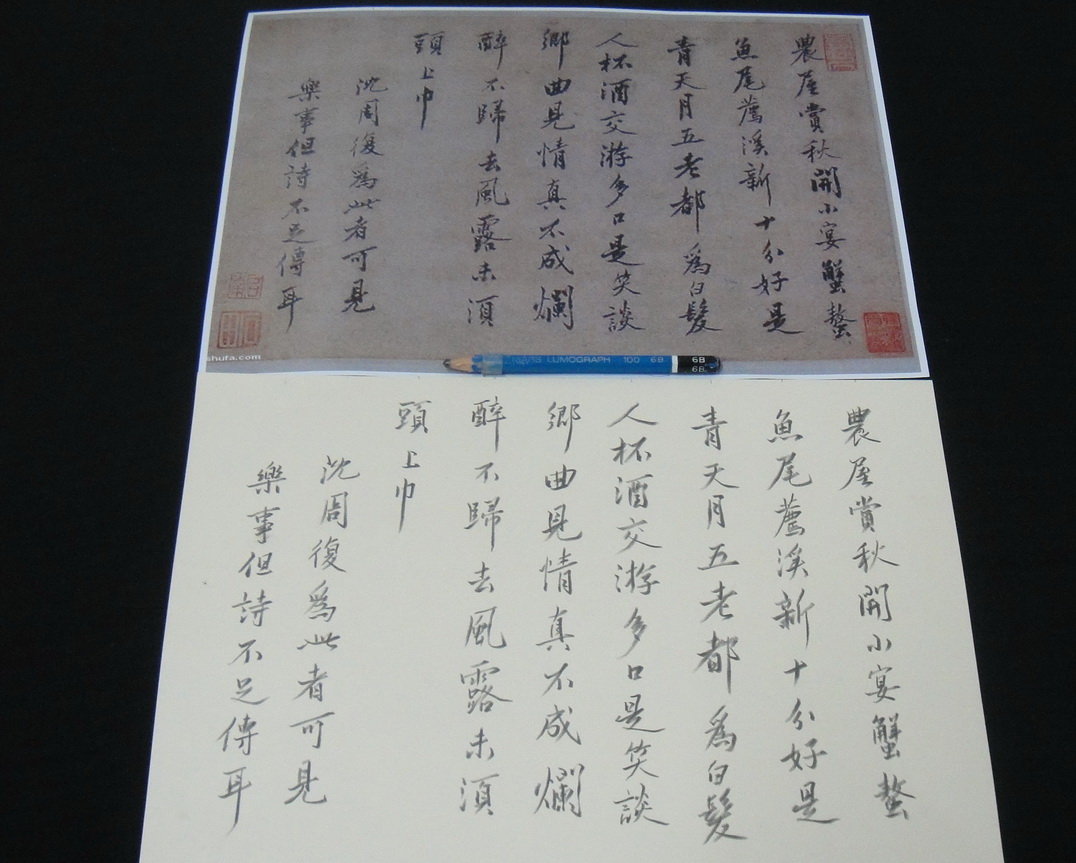 農屋賞秋開小宴蟹螯
魚尾薦溪新十分好是
青天月五老都為白髮
人杯酒交游多口是笑談
鄉曲見情真不成爛
醉不歸去風露未須
頭上巾
沈周復為此者可見
樂事但詩不足傳耳
shufa.com
LUMOGRAPH 100 6B
6B
6B
農屋賞秋開小宴蟹螯
魚尾薦溪新十分好是
青天月五老都為白髮
人杯酒交游多口是笑談
鄉曲見情真不成爛
醉不歸去風露未須
頭上巾
沈周復為此者可見
樂事但詩不足傳耳